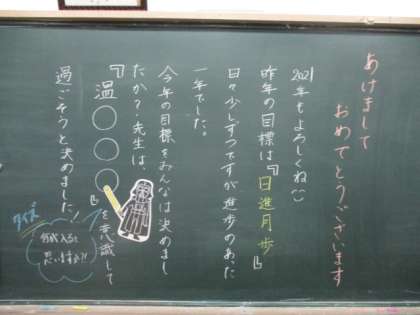 あけまして
おめでとうございます
2021年もよろしくね
昨年の目標は『日進月歩』
日々少しずつですが進歩のあった
一年でした。
今年の目標をみんなは決めまし
たか?先生は、
『温○○○』を意識して
過ごそうと決めました!
クイズ
何が入ると
思いますか?!